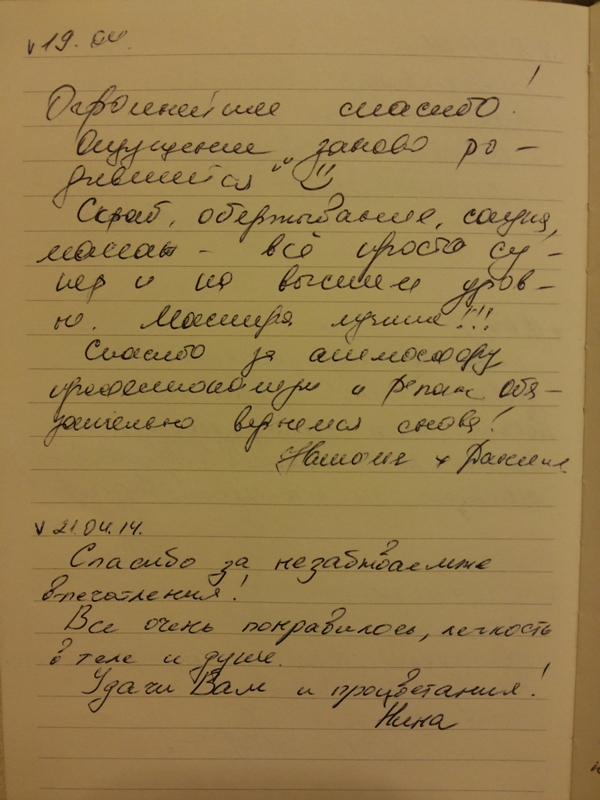 v 19.04.
Огромнейшее спасибо!
Ощущение "заново ро-
дившийся"
Скраб, обертывание, сауна,
массаж - всё просто су-
пер и на высшем уров-
не. Мастера лучшие!!!
Спасибо за атмосферу
профессионализм и релакс Обя-
зательно вернемся снова!
Наталия + Даниил
v 21.04.14.
Спасибо за незабываемые
впечатления!
Все очень понравилось, легкость
в теле и душе.
Удачи Вам и процветания!
Нина